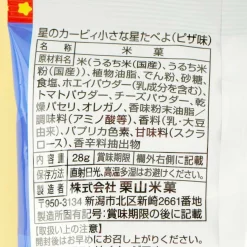 星のカービィ小さな星たべよ(ピザ味)
米菓
原材料名 米(うるち米(国産)、うるち米
粉(国産))、植物油脂、でん粉、砂糖、
食塩、ホエイパウダー(乳成分を含む)、
トマトパウダー、チーズパウダー、乾
燥パセリ、オレガノ、香味粉末油脂/
調味料(アミノ酸等)、香料(乳・大豆由
来)、パプリカ色素、甘味料(スクラ
ロース)、香辛料抽出物
内容量 28g 賞味期限 欄外右側に記載
保存方法 直射日光、高温多湿をお避けください。
製造者 株式会社 栗山米菓
〒950-3134 新潟市北区新崎2661番地
製造所固有記号は賞味期限の後に記載
使用上の注意
開封後はお早めにお召し上がりください。